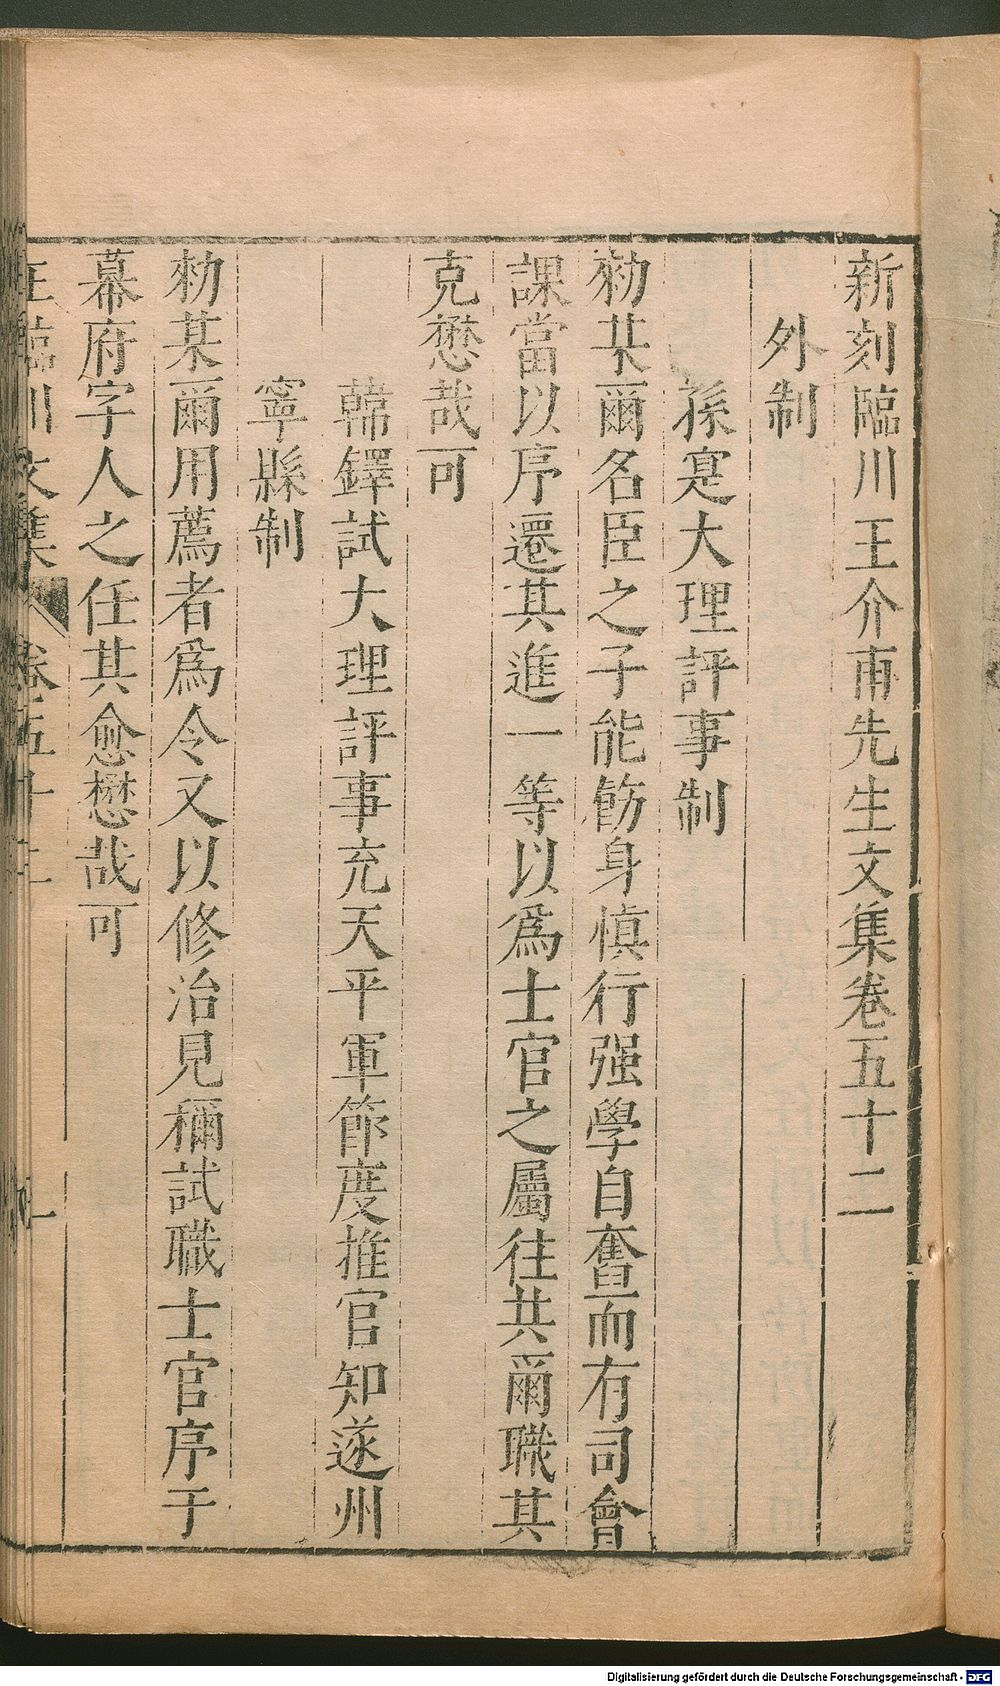 新刻臨川王介甫先生文集卷五十二
外制
孫寔大理評事制
勑某爾名臣之子能飭身慎行强學自奮而有司會
課當以序遷其進一等以爲士官之屬往共爾職其
克懋哉可
韓鐸試大理評事充天平軍節度推官知遂州
寧縣制
勑某爾用薦者爲令又以修治見稱試職士官序于
幕府字人之任其愈懋哉可
王臨川文集 卷五十二 一
Digitalisierung gefördert durch die Deutsche Forschungsgemeinschaft - DFG